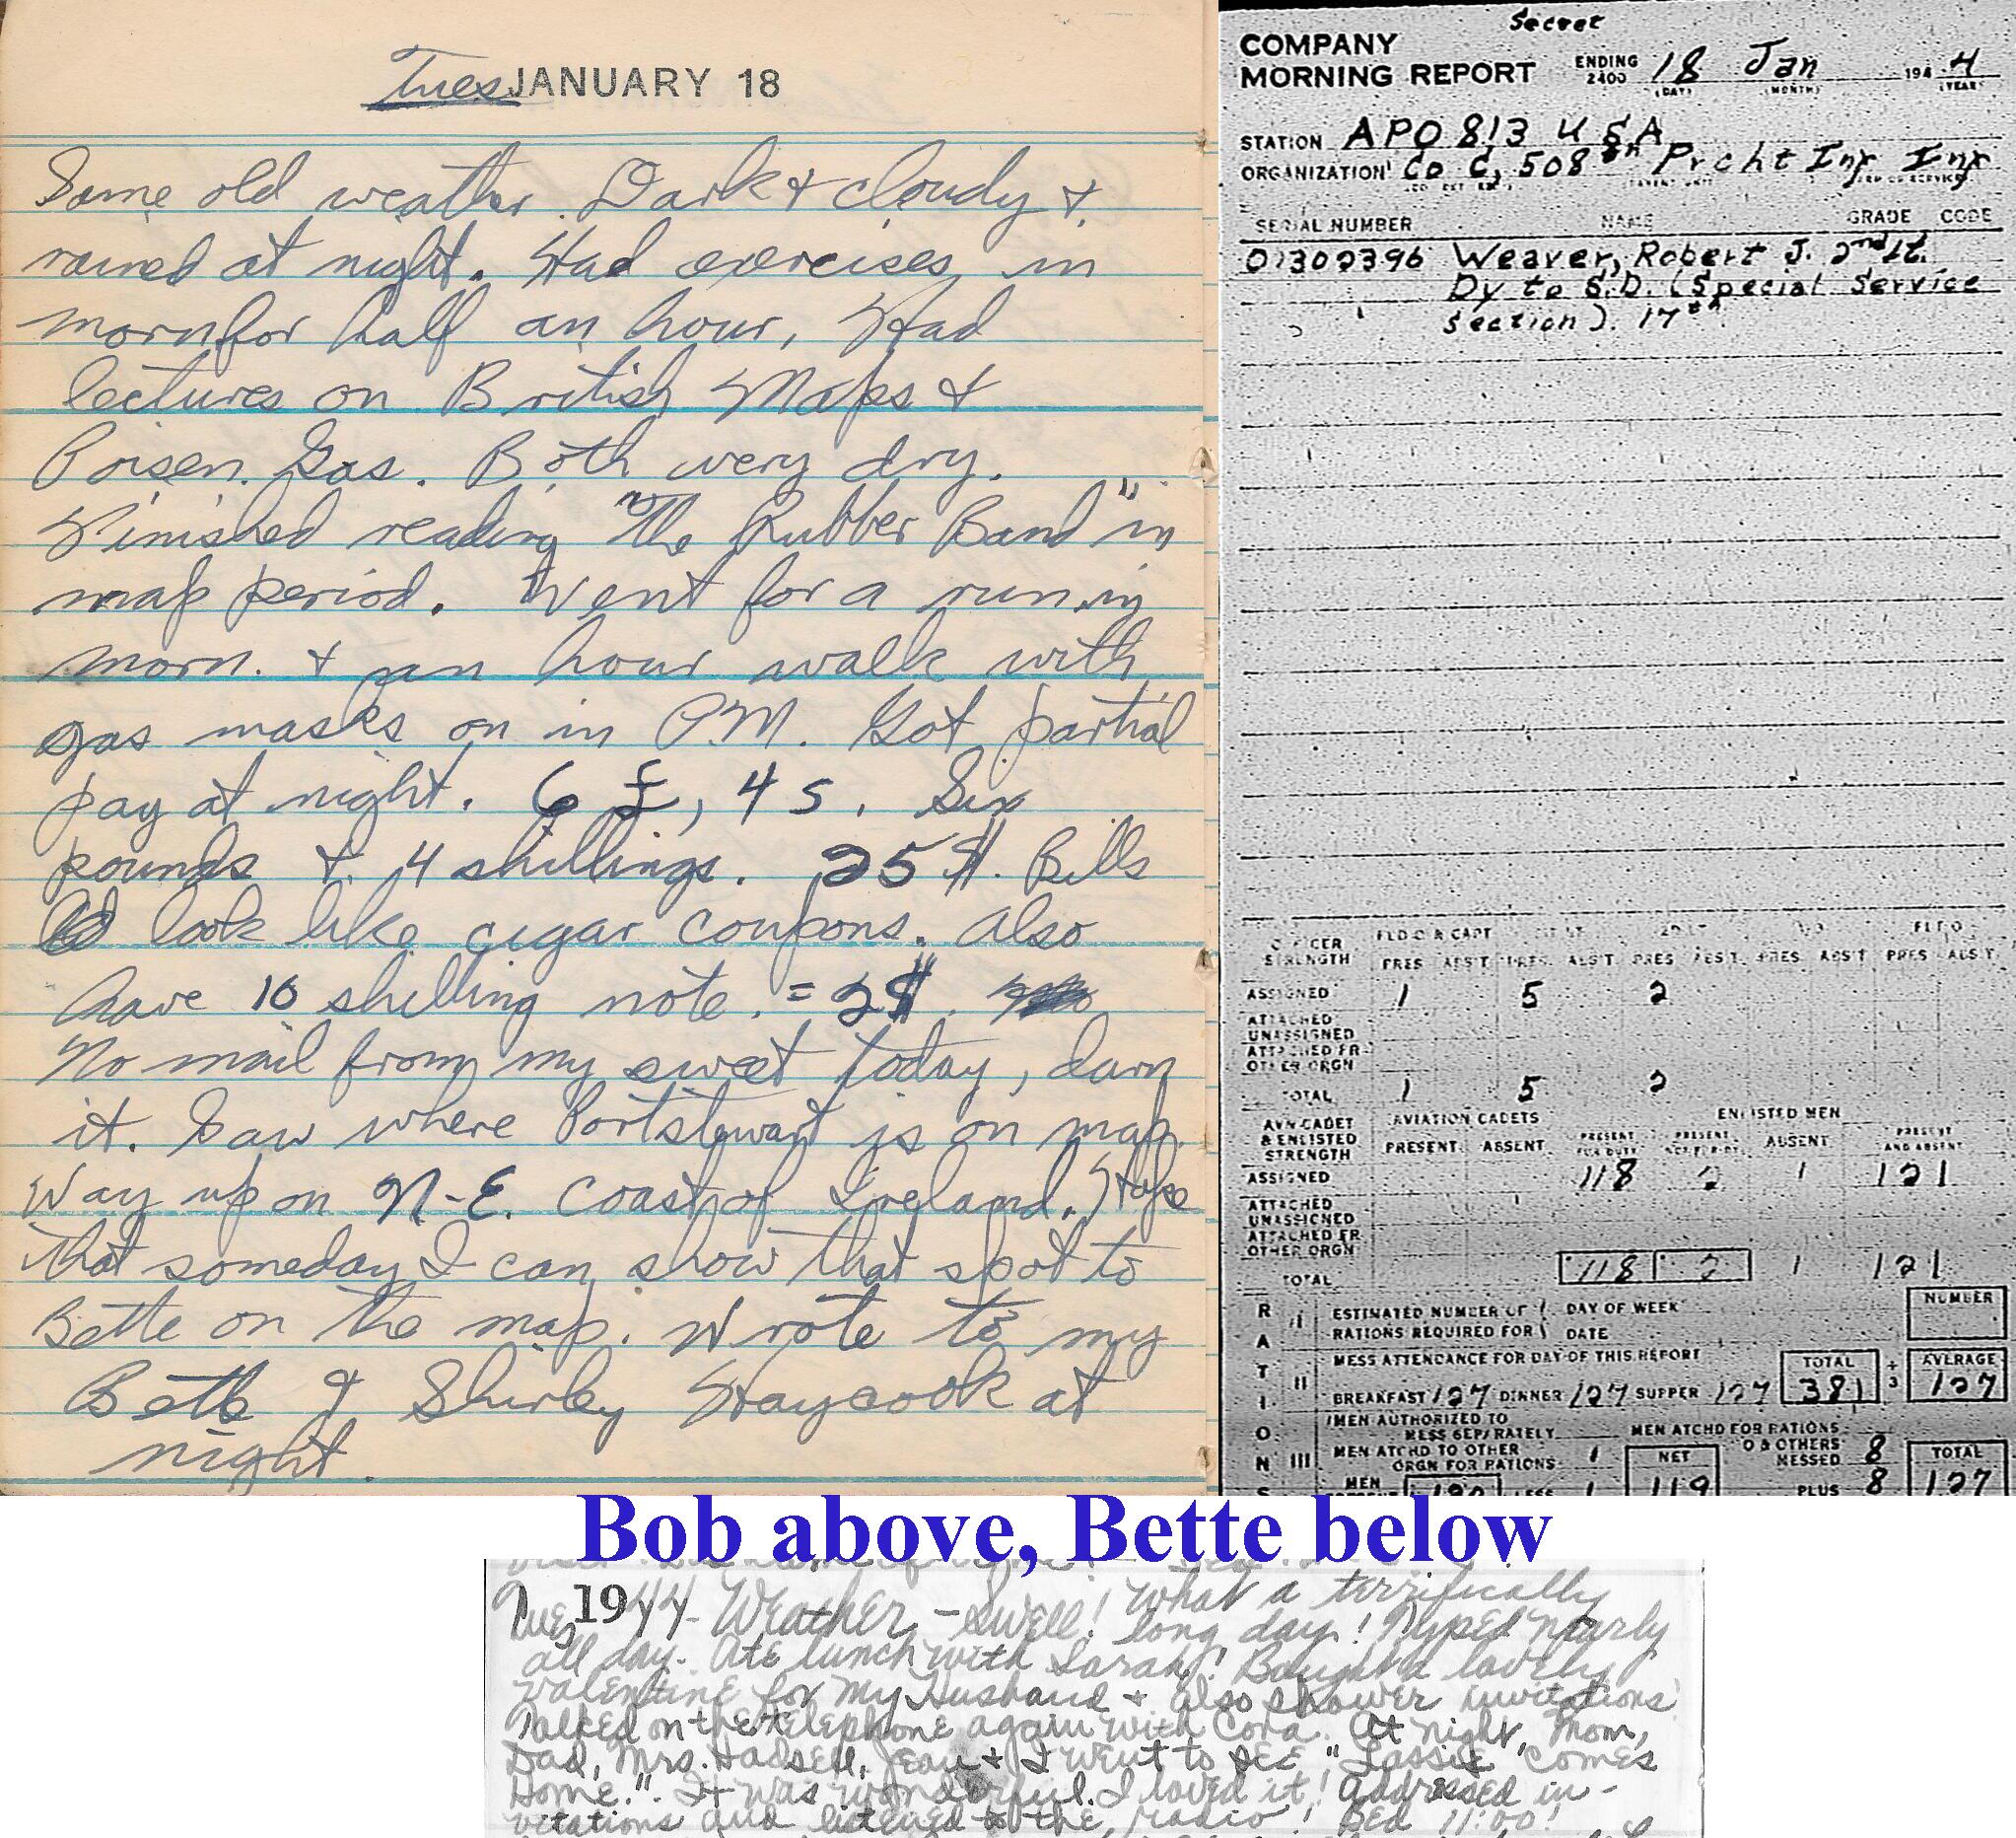 Tues JANUARY 18
Same old weather. Dark & cloudy &
rained at night. Had exercises in
morn for half an hour, Had
lectures on British Maps &
Poisen Gas. Both very dry.
Finished reading "The Rubber Band" in
map period. Went for a run in
morn. & an hour walk with
gas masks on in P.M. Got partial
pay at night. 6 £, 4 s. Six
pounds & 4 shillings. 25 $. Bills
look like cigar coupons. Also
have 10 shilling note. = 2$.
No mail from my sweet today, darn
it. Saw where Portstewart is on map.
Way up on N-E. Coast of Ireland. Hope
that someday I can show that spot to
Bette on the map. Wrote to my
Bette & Shirley Haycook at
night.
Secret
COMPANY
MORNING REPORT ENDING 2400 18 Jan 194 4
(DAY) (MONTH) (YEAR)
STATION APO 813 U S A
ORGANIZATION Co C, 508th Prcht Inf Inf
SERIAL NUMBER NAME GRADE CODE
01302396 Weaver, Robert J. 2nd Lt.
Dy to S.D. (Special Service
section). 17th
OFFICER STRENGTH FLD O & CAPT 1ST LT 2D LT W O FLT O
PRES ABS'T PRES ABS'T PRES ABS'T PRES ABS'T PRES ABS'T
ASSIGNED 1 5 2
ATTACHED
UNASSIGNED
ATTACHED FR
OTHER ORGN
TOTAL 1 5 2
AVN CADET & ENLISTED STRENGTH AVIATION CADETS ENLISTED MEN
PRESENT ABSENT PRESENT FOR DUTY PRESENT NOT FOR DUTY ABSENT PRESENT AND ABSENT
ASSIGNED 118 2 1 121
ATTACHED
UNASSIGNED
ATTACHED FR
OTHER ORGN
TOTAL 118 2 1 121
RATIONS
I ESTIMATED NUMBER OF DAY OF WEEK NUMBER
RATIONS REQUIRED FOR DATE
II MESS ATTENDANCE FOR DAY OF THIS REPORT TOTAL ÷ 3 AVERAGE
BREAKFAST 127 DINNER 127 SUPPER 127 381 127
III MEN AUTHORIZED TO
MESS SEPARATELY MEN ATCHD FOR RATIONS
MEN ATCHD TO OTHER
ORGN FOR RATIONS 1 NET O & OTHERS MESSED 8 TOTAL
MEN PRESENT 120 LESS 1 119 PLUS 8 127
Bob above, Bette below
Tues 1944 - Weather - Swell! What a terrifically
long day! Typed nearly
all day. Ate lunch with Sarah! Bought a lovely
valentine for my Husband & also shower invitations
Talked on the telephone again with Cora. At night, Mom,
Dad, Mrs. Hadsell, Jean & I went to see "Lassie Comes
Home." It was wonderful. I loved it! Addressed in-
vitations and listened to the radio! Bed 11:00!